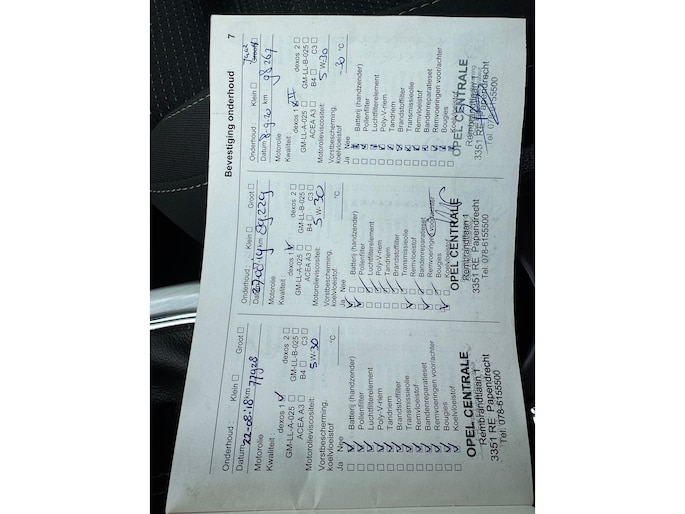 Bevestiging onderhoud 7
Onderhoud : Klein Groot
Datum 22-08-18 km 77928
Motorolie
Kwaliteit : dexos 1 dexos 2
GM-LL-A-025 GM-LL-B-025
ACEA A3 B4 C3
Motorolieviscositeit: 5 W-30
Vorstbescherming,
koelvloeistof °C
Ja Nee
Batterij (handzender)
Pollenfilter
Luchtfilterelement
Poly-V-riem
Tandriem
Brandstoffilter
Transmissieolie
Remvloeistof
Bandenreparatieset
Remvoeringen voor/achter
Bougies
Koelvloeistof
OPEL CENTRALE
Rembrandtlaan 1
3351 RE Papendrecht
Tel. 078-6155500
Onderhoud : Klein Groot
Datum km 89229
Motorolie
Kwaliteit : dexos 1 dexos 2
GM-LL-A-025 GM-LL-B-025
ACEA A3 B4 C3
Motorolieviscositeit: 5 W-30
Vorstbescherming,
koelvloeistof °C
Ja Nee
Batterij (handzender)
Pollenfilter
Luchtfilterelement
Poly-V-riem
Tandriem
Brandstoffilter
Transmissieolie
Remvloeistof
Bandenreparatieset
Remvoeringen voor/achter
Bougies
Koelvloeistof
OPEL CENTRALE
Rembrandtlaan 1
3351 RE Papendrecht
Tel. 078-6155500
Onderhoud : Klein Groot
Datum 8-9-20 km 98267
Motorolie
Kwaliteit : dexos 1 dexos 2
GM-LL-A-025 GM-LL-B-025
ACEA A3 B4 C3
Motorolieviscositeit: 5 W-30
Vorstbescherming,
koelvloeistof -30 °C
Ja Nee
Batterij (handzender)
Pollenfilter
Luchtfilterelement
Poly-V-riem
Tandriem
Brandstoffilter
Transmissieolie
Remvloeistof
Bandenreparatieset
Remvoeringen voor/achter
Bougies
Koelvloeistof
OPEL CENTRALE
3351 RE Papendrecht
Tel. 078-6155500